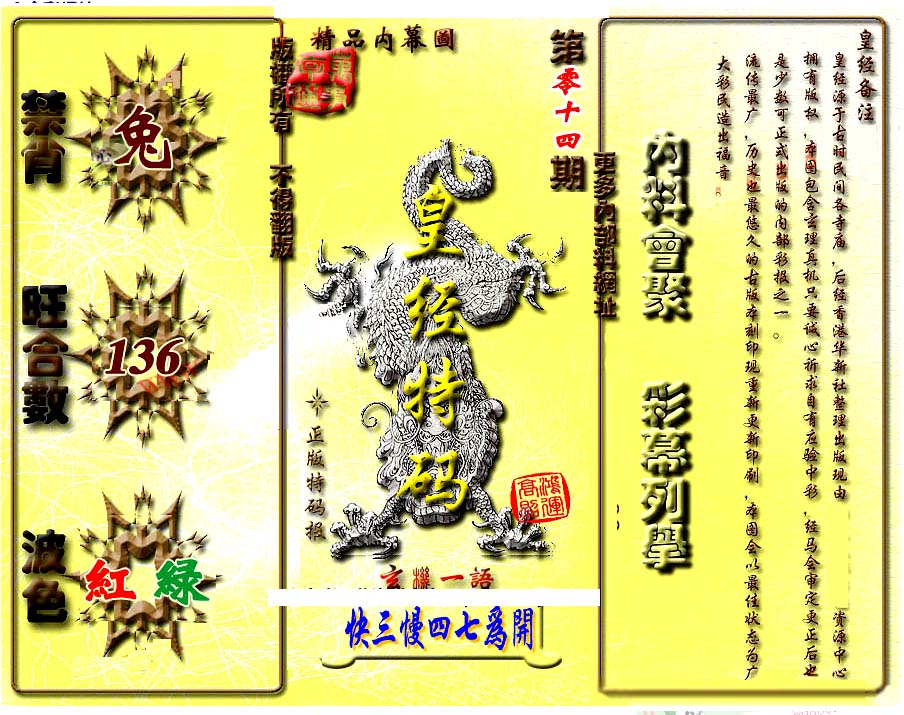 精品内幕圖
第零十四期
版權所有 不得翻版
更多內部料網址
禁肖
兔
旺合數
136
波色
紅 緑
皇经特码
正版特码报
鴻運
高照
玄機一語
快三慢四七爲開
内料會聚
彩幕列舉
皇经备注
皇经源于古时民间各寺庙,后经香港华新社整理出版现由 资源中心
拥有版权,本图包含玄理真机只要诚心祈求自有应验中彩,经马会审定更正后也
是少数可正式出版的内部彩报之一。
流传最广,历史也最悠久的古版本刻印现重新更新印刷,本图会以最佳状态为广
大彩民造出福音。